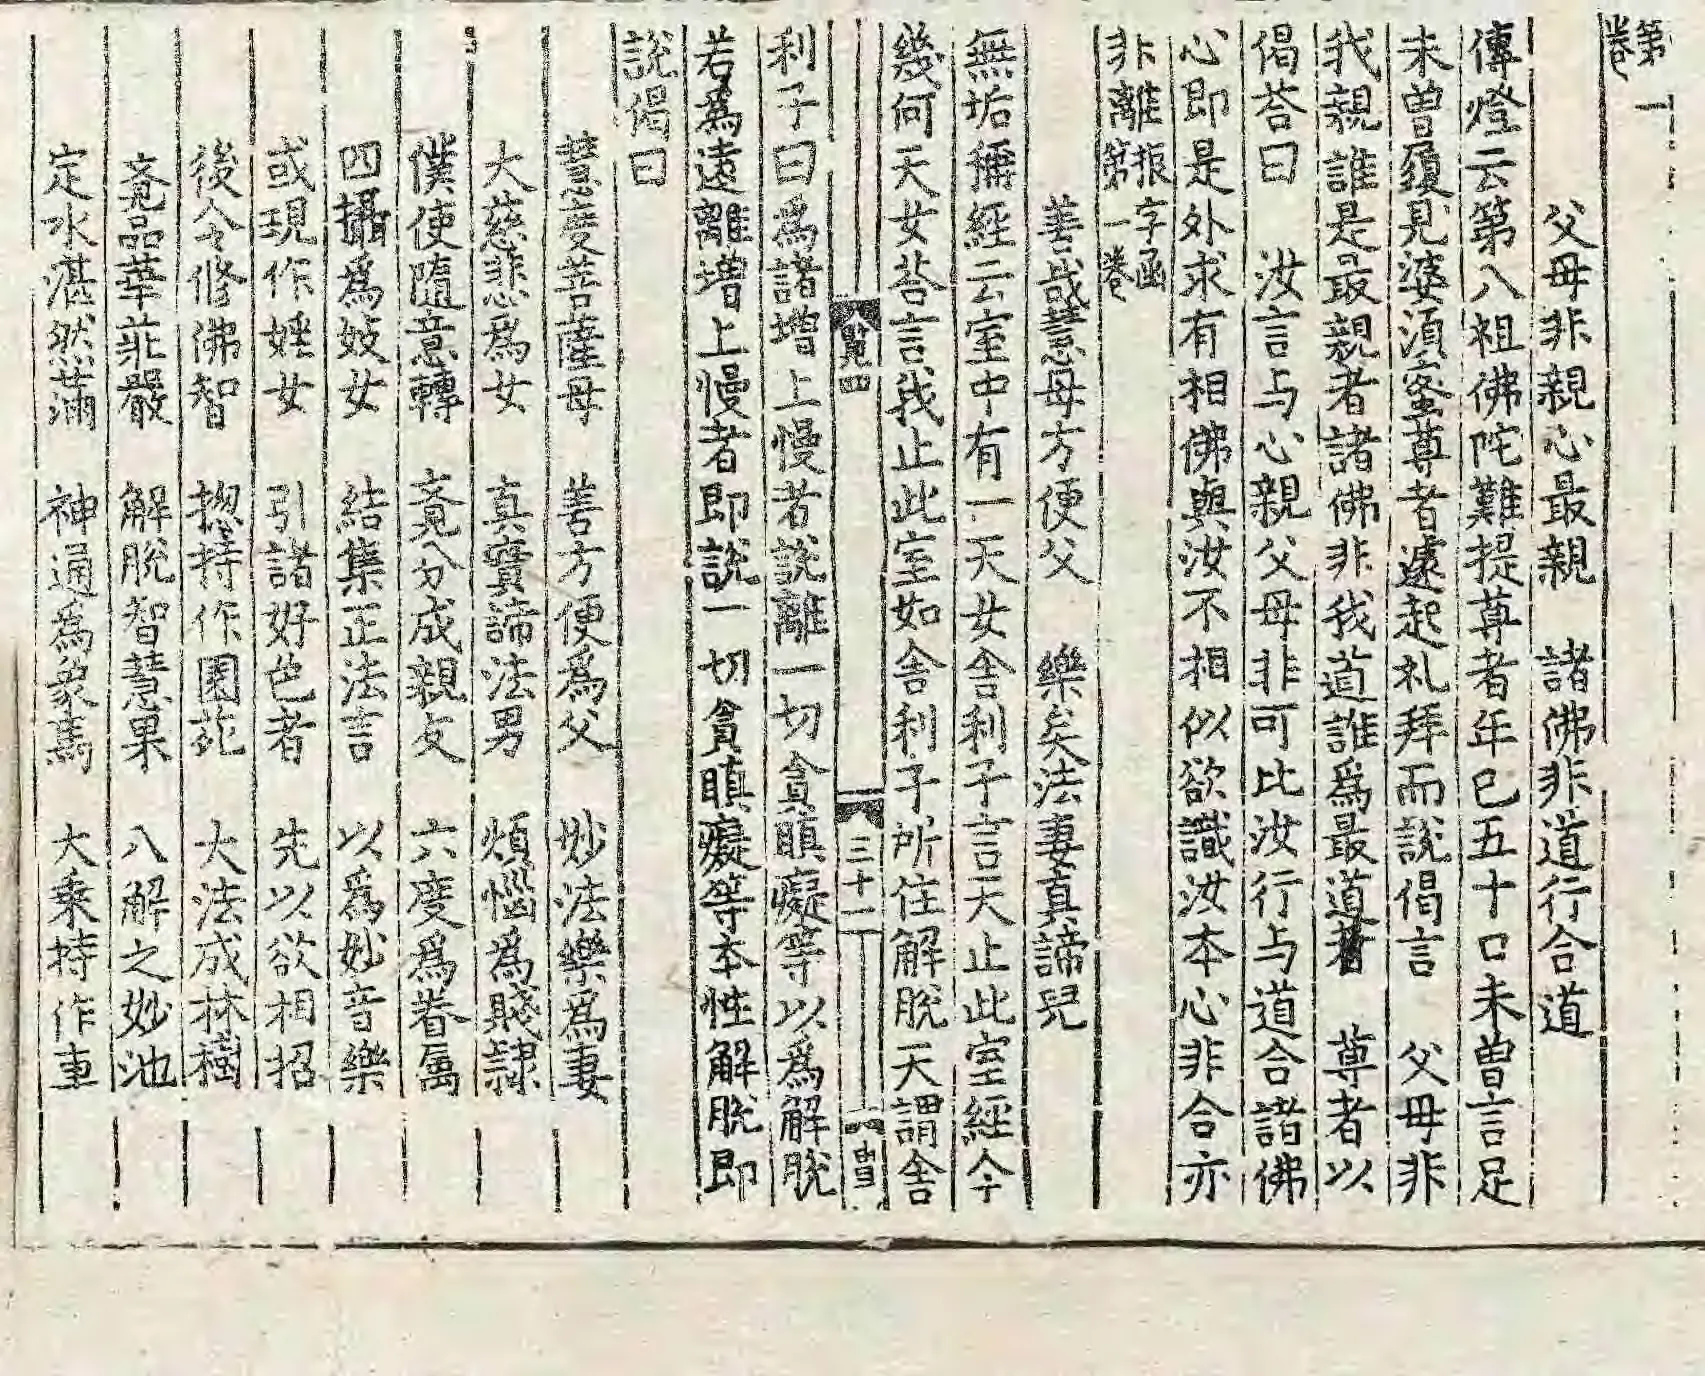 第一卷
父母非親心最親　諸佛非道行合道
傳燈云第八祖佛陀難提尊者年已五十口未曾言足
未曾履見婆須蜜尊者遽起礼拜而說偈言　父母非
我親誰是最親者諸佛非我道誰爲最道者　尊者以
偈荅曰　汝言与心親父母非可比汝行与道合諸佛
心即是外求有相佛與汝不相似欲識汝本心非合亦
非離振字函第一卷
善哉慧母方便父　樂矣法妻真諦兒
無垢稱經云室中有一天女舍利子言天止此室經今
幾何天女荅言我止此室如舍利子所住解脫天謂舍
三十一
利子曰爲諸增上慢者說離一切貪瞋癡等以爲解脫
若爲遠離增上慢者即說一切貪瞋癡等本性解脫即
說偈曰
慧度菩薩母　善方便爲父　妙法樂爲妻
大慈悲爲女　真實諦法男　煩惱爲賤隷
僕使隨意轉　覔分成親友　六度爲眷属
四攝爲妓女　結集正法言　以爲妙音樂
或現作婬女　引諸好色者　先以欲相招
後令修佛智　揔持作園苑　大法成林樹
覔品華莊嚴　解脫智慧果　八解之妙池
定水湛然滿　神通爲象馬　大乗持作車